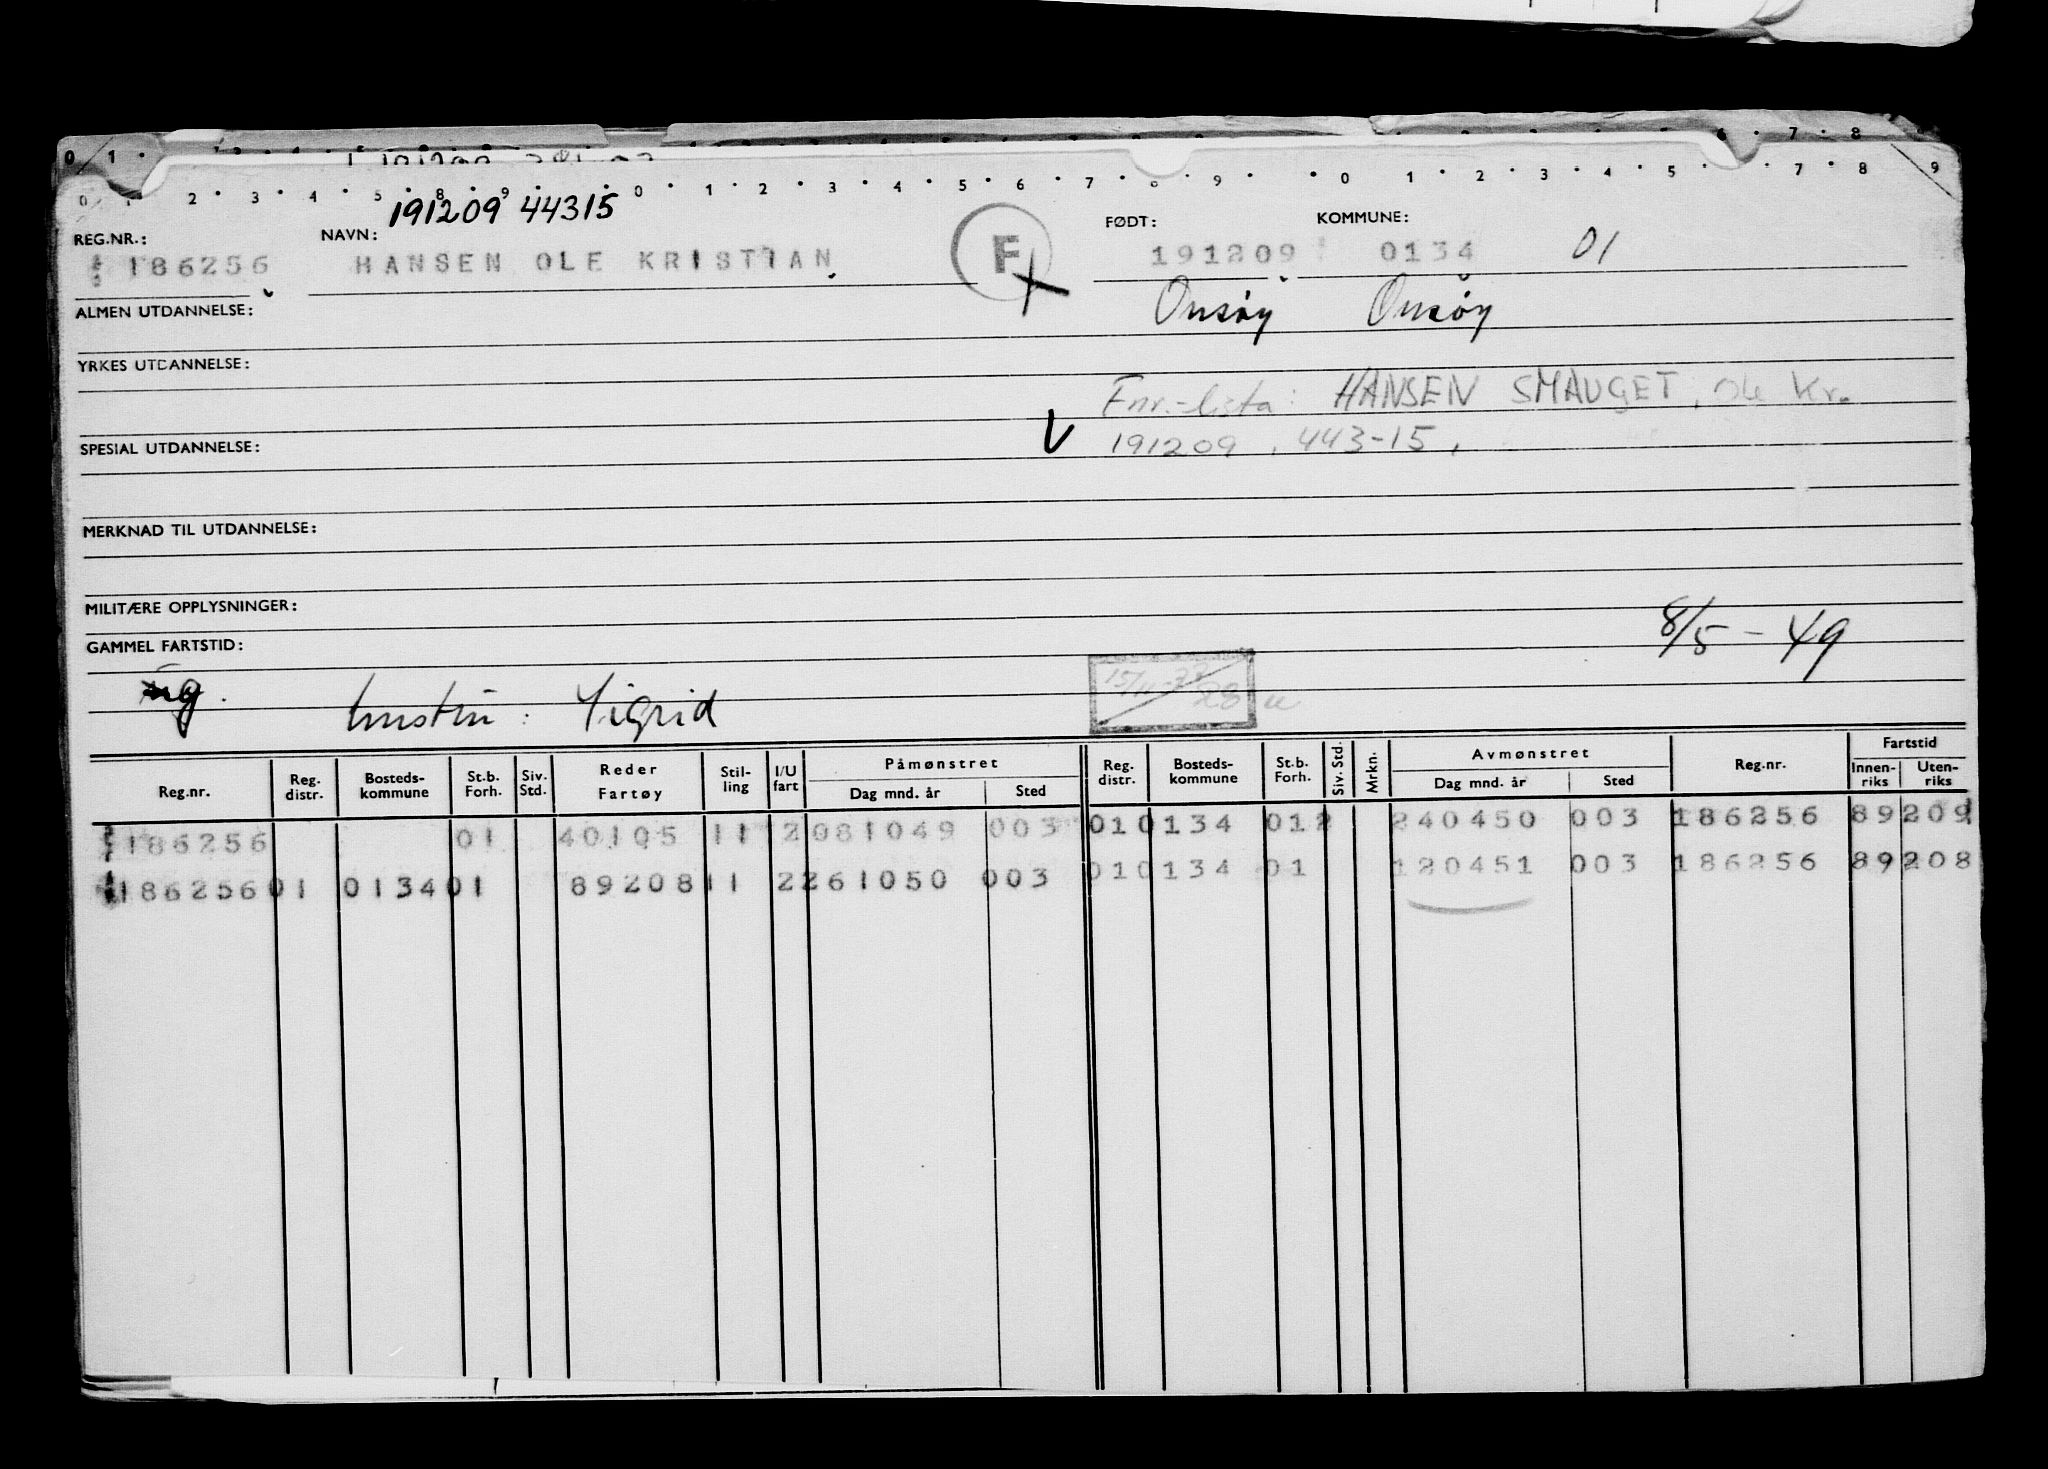 0 1 . 6 . 7 . 8
0 1 2 . 3 . 4 . 5 . 8 . 9 . 0 . 1 . 2 . 3 . 4 . 5 . 6 . 7 . 8 . 9 . . 0 1 . 2 . 3 . 4 . 5 . 7 . 8 9
191209 44315
REG.NR.: NAVN: F FØDT: KOMMUNE:
186256 HANSEN OLE KRISTIAN 191209 0134 01
ALMEN UTDANNELSE: Onsøy Onsøy
YRKES UTDANNELSE:
Fnr.-lista: HANSEN SMAUGET, Ole Kr.
SPESIAL UTDANNELSE: V 191209, 443-15,
MERKNAD TIL UTDANNELSE:
MILITÆRE OPPLYSNINGER:
GAMMEL FARTSTID: 8/5 - 49
ug. hustru: Sigrid
Reg.nr. Reg. distr. Bosteds- kommune St.b. Forh. Siv. Std. Reder Fartøy Stil- ling I/U fart Påmønstret Dag mnd. år Sted Reg. distr. Bosteds- kommune St.b. Forh. Siv. Std. Mrkn. Avmønstret Dag mnd. år Sted Reg.nr. Fartstid Innen- riks Uten- riks
186256 01 40105 11 2 081049 003 01 0134 01 2 240450 003 186256 89209
186256 01 0134 01 89208 11 2 261050 003 01 0134 01 120451 003 186256 89208